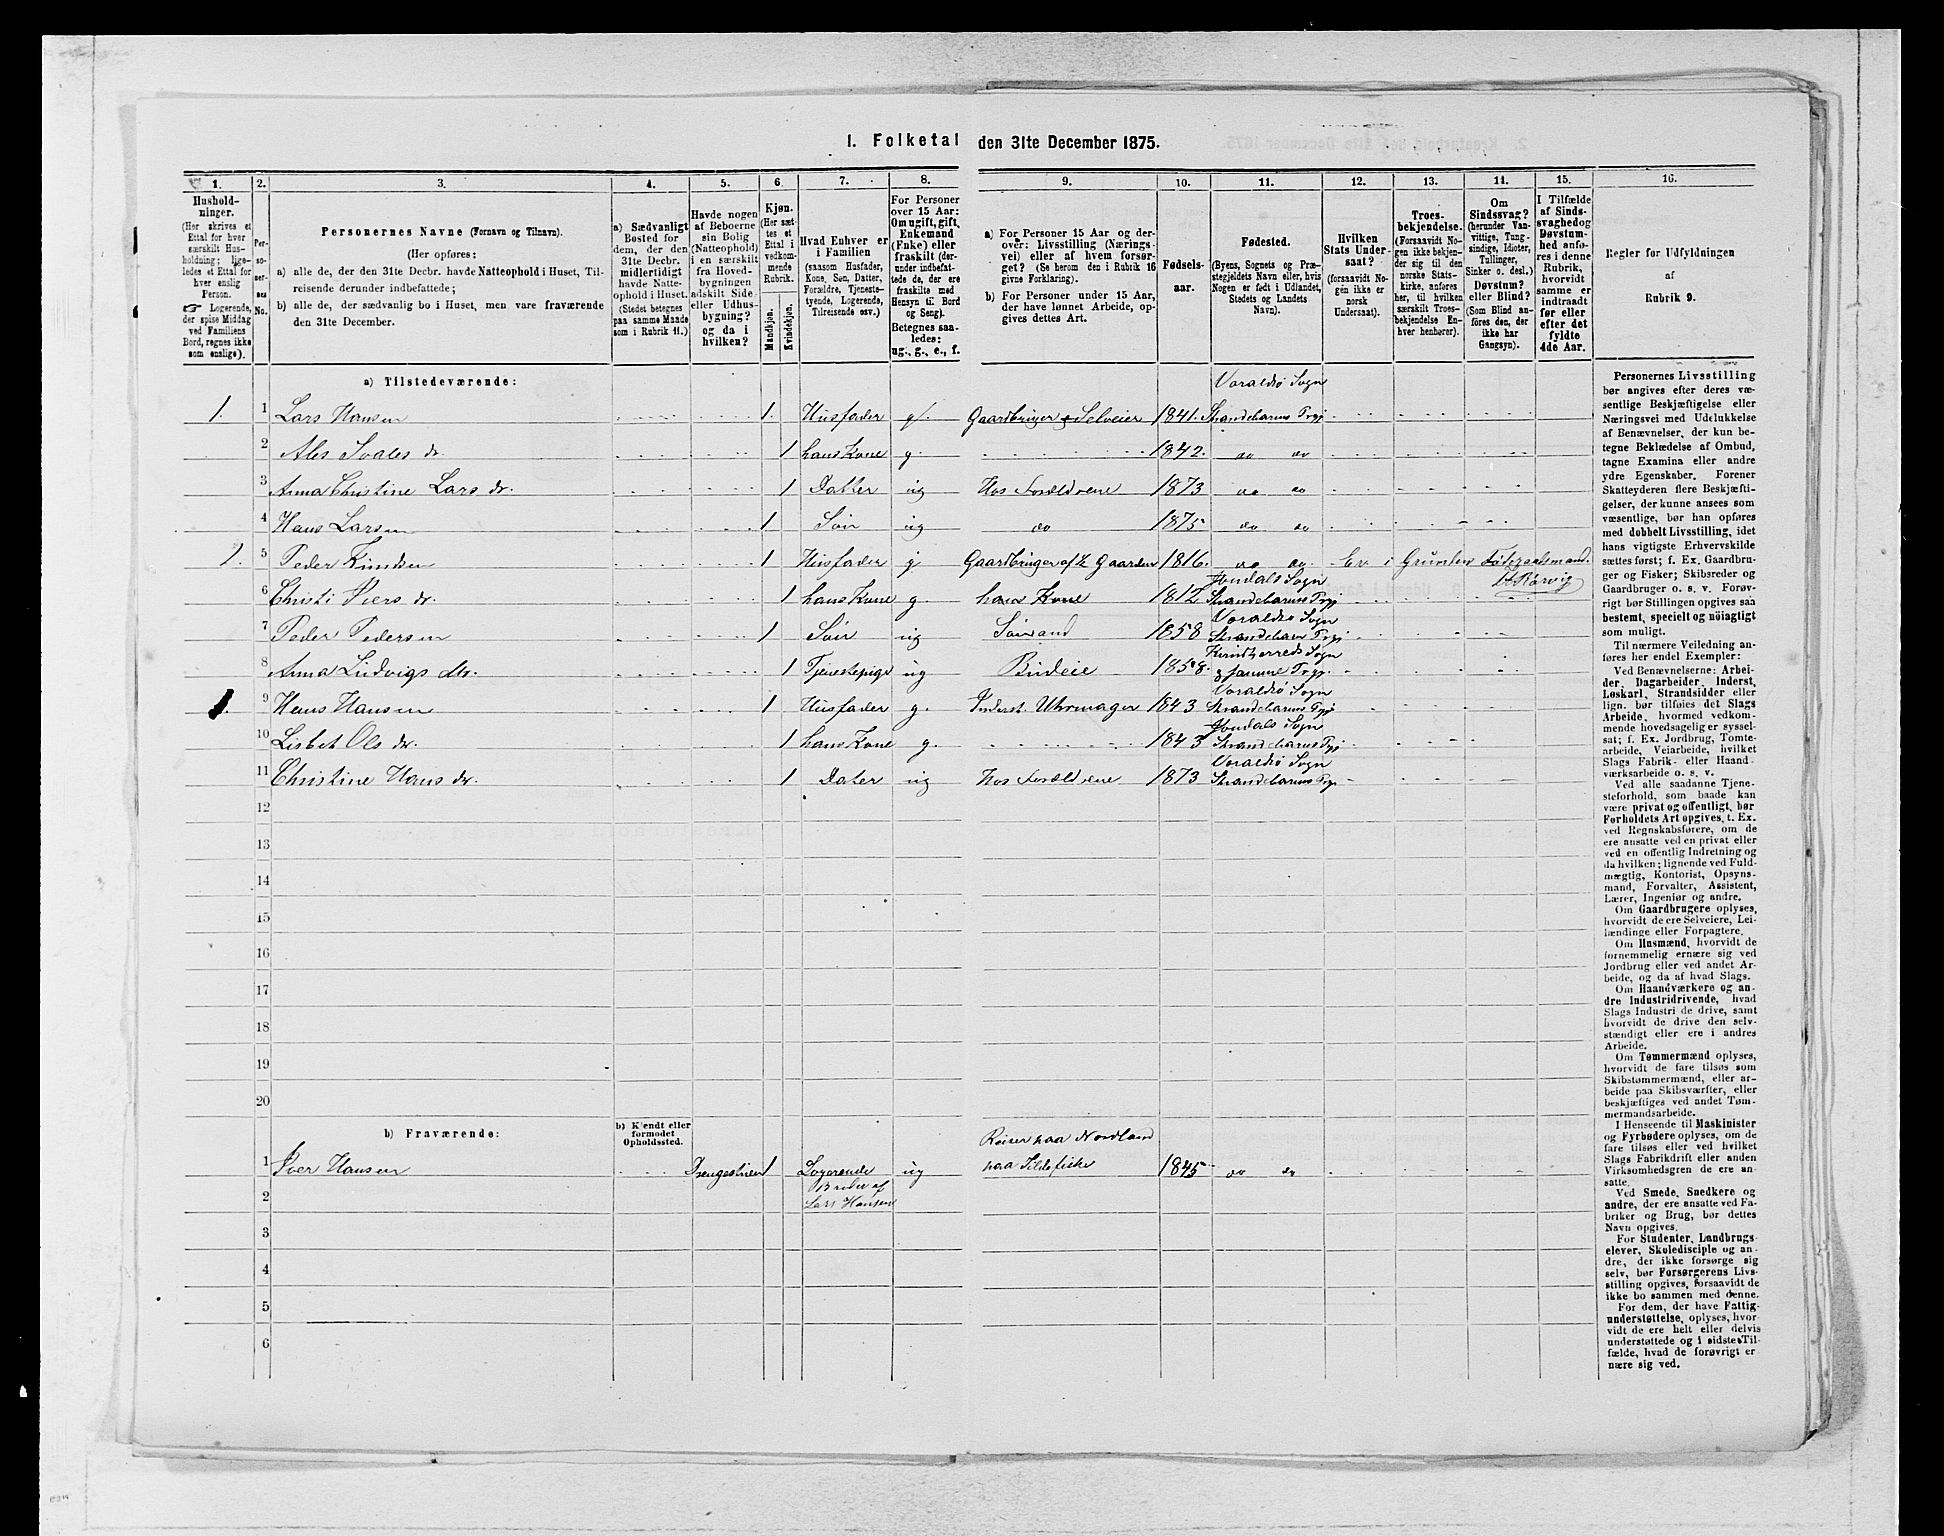 1. Folketal den 31te December 1875.
1. 2. 3. 4. 5. 6. 7. 8. 9. 10. 11. 12. 13. 14. 15. 16.
Hushold-
ninger.
(Her skrives et
Ettal for hver
særskilt Hus-
holdning; lige-
ledes et Ettal for
hver enslig
Person.
☞ Logerende,
der spise Middag
ved Familiens
Bord, regnes ikke
som enslige).
Per-
so-
ner-
nes
No.
Personernes Navne (Fornavn og Tilnavn).
(Her opføres:
a) alle de, der den 31te Decbr. havde Natteophold i Huset, Til-
reisende derunder indbefattede;
b) alle de, der sædvanlig bo i Huset, men vare fraværende
den 31te December.
a) Sædvanligt
Bosted for
dem, der den
31te Decbr.
midlertidigt
havde Natte-
ophold i Huset.
(Stedet betegnes
paa samme Maade
som i Rubrik 11.)
Havde nogen
af Beboerne
sin Bolig
(Natteophold)
i en særskilt
fra Hoved-
bygningen
adskilt Side-
eller Udhus-
bygning?
og da i
hvilken?
Kjøn.
(Her sæt-
tes et
Ettal i
vedkom-
mende
Rubrik.
Mandkjøn.
Kvindekjøn.
Hvad Enhver er
i Familien
(saasom Husfader,
Kone, Søn, Datter,
Forældre, Tjeneste-
tyende, Logerende,
Tilreisende osv.)
For Personer
over 15 Aar:
Om ugift, gift,
Enkemand
(Enke) eller
fraskilt (der-
under indbefat-
tede de, der ere
fraskilte med
Hensyn til Bord
og Seng).
Betegnes saa-
ledes:
ug., g., e., f.
a) For Personer 15 Aar og der-
over: Livsstilling (Nærings-
vei) eller af hvem forsør-
get? (Se herom den i Rubrik 16
givne Forklaring).
b) For Personer under 15 Aar,
der have lønnet Arbeide, op-
gives dettes Art.
Fødsels-
aar.
Fødested.
(Byens, Sognets og Præ-
stegjeldets Navn eller, hvis
Nogen er født i Udlandet,
Stedets og Landets
Navn).
Hvilken
Stats Under-
saat?
(forsaavidt No-
gen ikke er
norsk
Undersaat).
Troes-
bekjendelse.
(Forsaavidt No-
gen ikke bekjen-
der sig til den
norske Stats-
kirke, anføres
her, til hvilken
særskilt Troes-
bekjendelse En-
hver henhører).
Om
Sindssvag?
(herunder Van-
vittige, Tung-
sindige, Idioter,
Tullinger,
Sinker o. desl.)
Døvstum?
eller Blind?
(Som Blind an-
føres den, der
ikke har
Gangsyn).
I Tilfælde
af Sinds-
svaghed og
Døvstum-
hed anfø-
res i denne
Rubrik,
hvorvidt
samme er
indtraadt
før eller
efter det
fyldte
4de Aar.
Regler for Udfyldningen
af
Rubrik 9.
a) Tilstedeværende:
Varaldsø Sogn
1. 1 Lars Hansen 1. Husfader g. Gaardbruger Selveier 1841. Strandebarms Prgj
2 Ales Ivales dr. 1 hans Kone g. 1842. do do
3 Anna Christine Lars dr. 1 Datter ug Hos Forældrene 1873 do do
4 Hans Larsen 1 Søn ug do 1875 do do
1. 5 Peder Knudsen 1 Husfader g Gaardbruger af ½ Gaarden 1816. do do Er i Grunden
Jondals Sogn
6 Christi Piers dr. 1 hans Kone g. hans Kone 1812 Strandebarms Prgj
Varaldsø Sogn
7 Peder Pedersen 1 Søn ug 1858 Strandebarm Prgj
Kvindherreds Sogn
8 Anna Ludvigs dtr. 1 Tjenestepige ug Budeie 1858. & samme Prgj.
Varaldsø Sogn
1. 9 Hans Hansen 1 Husfader g. Inderst. Uhrmager 1843 Strandebarms Prgj
Jondals Sogn
10 Lisbet Ols dr. 1 hans Kone g. 1843 Strandebarms Prgj
Varaldsø Sogn
11 Christine Hans dr. 1 Dater ug Hos Forældrene 1873 Strandebarms Prgj
12
13
14
15
16
17
18
19
20
b) Fraværende:
b) Kjendt eller
formodet
Opholdssted.
Reiser paa Nordland
1 Iver Hansen 1 Logerende ug paa Sildefiske 1845 do do
2 Broder af
Lars Hansen
3
4
5
6
Personernes Livsstilling
bør angives efter deres væ-
sentlige Beskjæftigelse eller
Næringsvei med Udelukkelse
af Benævnelser, der kun be-
tegne Beklædelse af Ombud,
tagne Examina eller andre
ydre Egenskaber. Forener
Skatteyderen flere Beskjæfti-
gelser, der kunne ansees som
væsentlige, bør han opføres
med dobbelt Livsstilling, idet
hans vigtigste Erhvervskilde
sættes først; f. Ex. Gaardbru-
ger og Fisker; Skibsreder og
Gaardbruger o. s. v. Forøv-
rigt bør Stillingen opgives saa
bestemt, specielt og nöiagtigt
som muligt.
Til nærmere Veiledning an-
føres her endel Exempler:
Ved Benævnelserne: Arbei-
der, Dagarbeider, Inderst,
Løskarl, Strandsidder eller
lign. bør tilføies det Slags
Arbeide, hvormed vedkom-
mende hovedsagelig er syssel-
sat; f. Ex. Jordbrug, Tomte-
arbeide, Veiarbeide, hvilket
Slags Fabrik- eller Haand-
værksarbeide o. s. v.
Ved alle saadanne Tjene-
steforhold, som baade kan
være privat og offentligt, bør
Forholdets Art opgives, t. Ex.
ved Regnskabsførere, om de
ere ansatte ved en privat eller
ved en offentlig Indretning og
da hvilken; lignende ved Fuld-
mægtig, Kontorist, Opsyns-
mand, Forvalter, Assistent,
Lærer, Ingeniør og andre.
Om Gaardbrugere oplyses,
hvorvidt de ere Selveiere, Lei-
lændinge eller Forpagtere.
Om Husmænd, hvorvidt de
fornemmelig ernære sig ved
Jordbrug eller ved andet Ar-
beide, og da af hvad Slags.
Om Haandværkere og an-
dre Industridrivende, hvad
Slags Industri de drive, samt
hvorvidt de drive den selv-
stændigt eller ere i andres
Arbeide.
Om Tømmermænd oplyses,
hvorvidt de fare tilsøs som
Skibstømmermænd, eller ar-
beide paa Skibsværfter, eller
beskjæftiges ved andet Tøm-
mermandsarbeide.
I Henseende til Maskinister
og Fyrbødere oplyses, om de
fare tilsøs eller ved hvilket
Slags Fabrikdrift eller anden
Virksomhedsgren de ere an-
satte.
Ved Smede, Snedkere og
andre, der ere ansatte ved Fa-
briker og Brug, bør dettes
Navn opgives.
For Studenter, Landbrugs-
elever, Skoledisciple og an-
dre, der ikke forsørge sig
selv, bør Forsørgerens Livs-
stilling opgives, forsaavidt de
ikke bo sammen med denne.
For dem, der have Fattig-
understøttelse, oplyses, hvor-
vidt de ere helt eller delvis
understøttede og i sidste Til-
fælde, hvad de forøvrigt er-
nære sig ved.